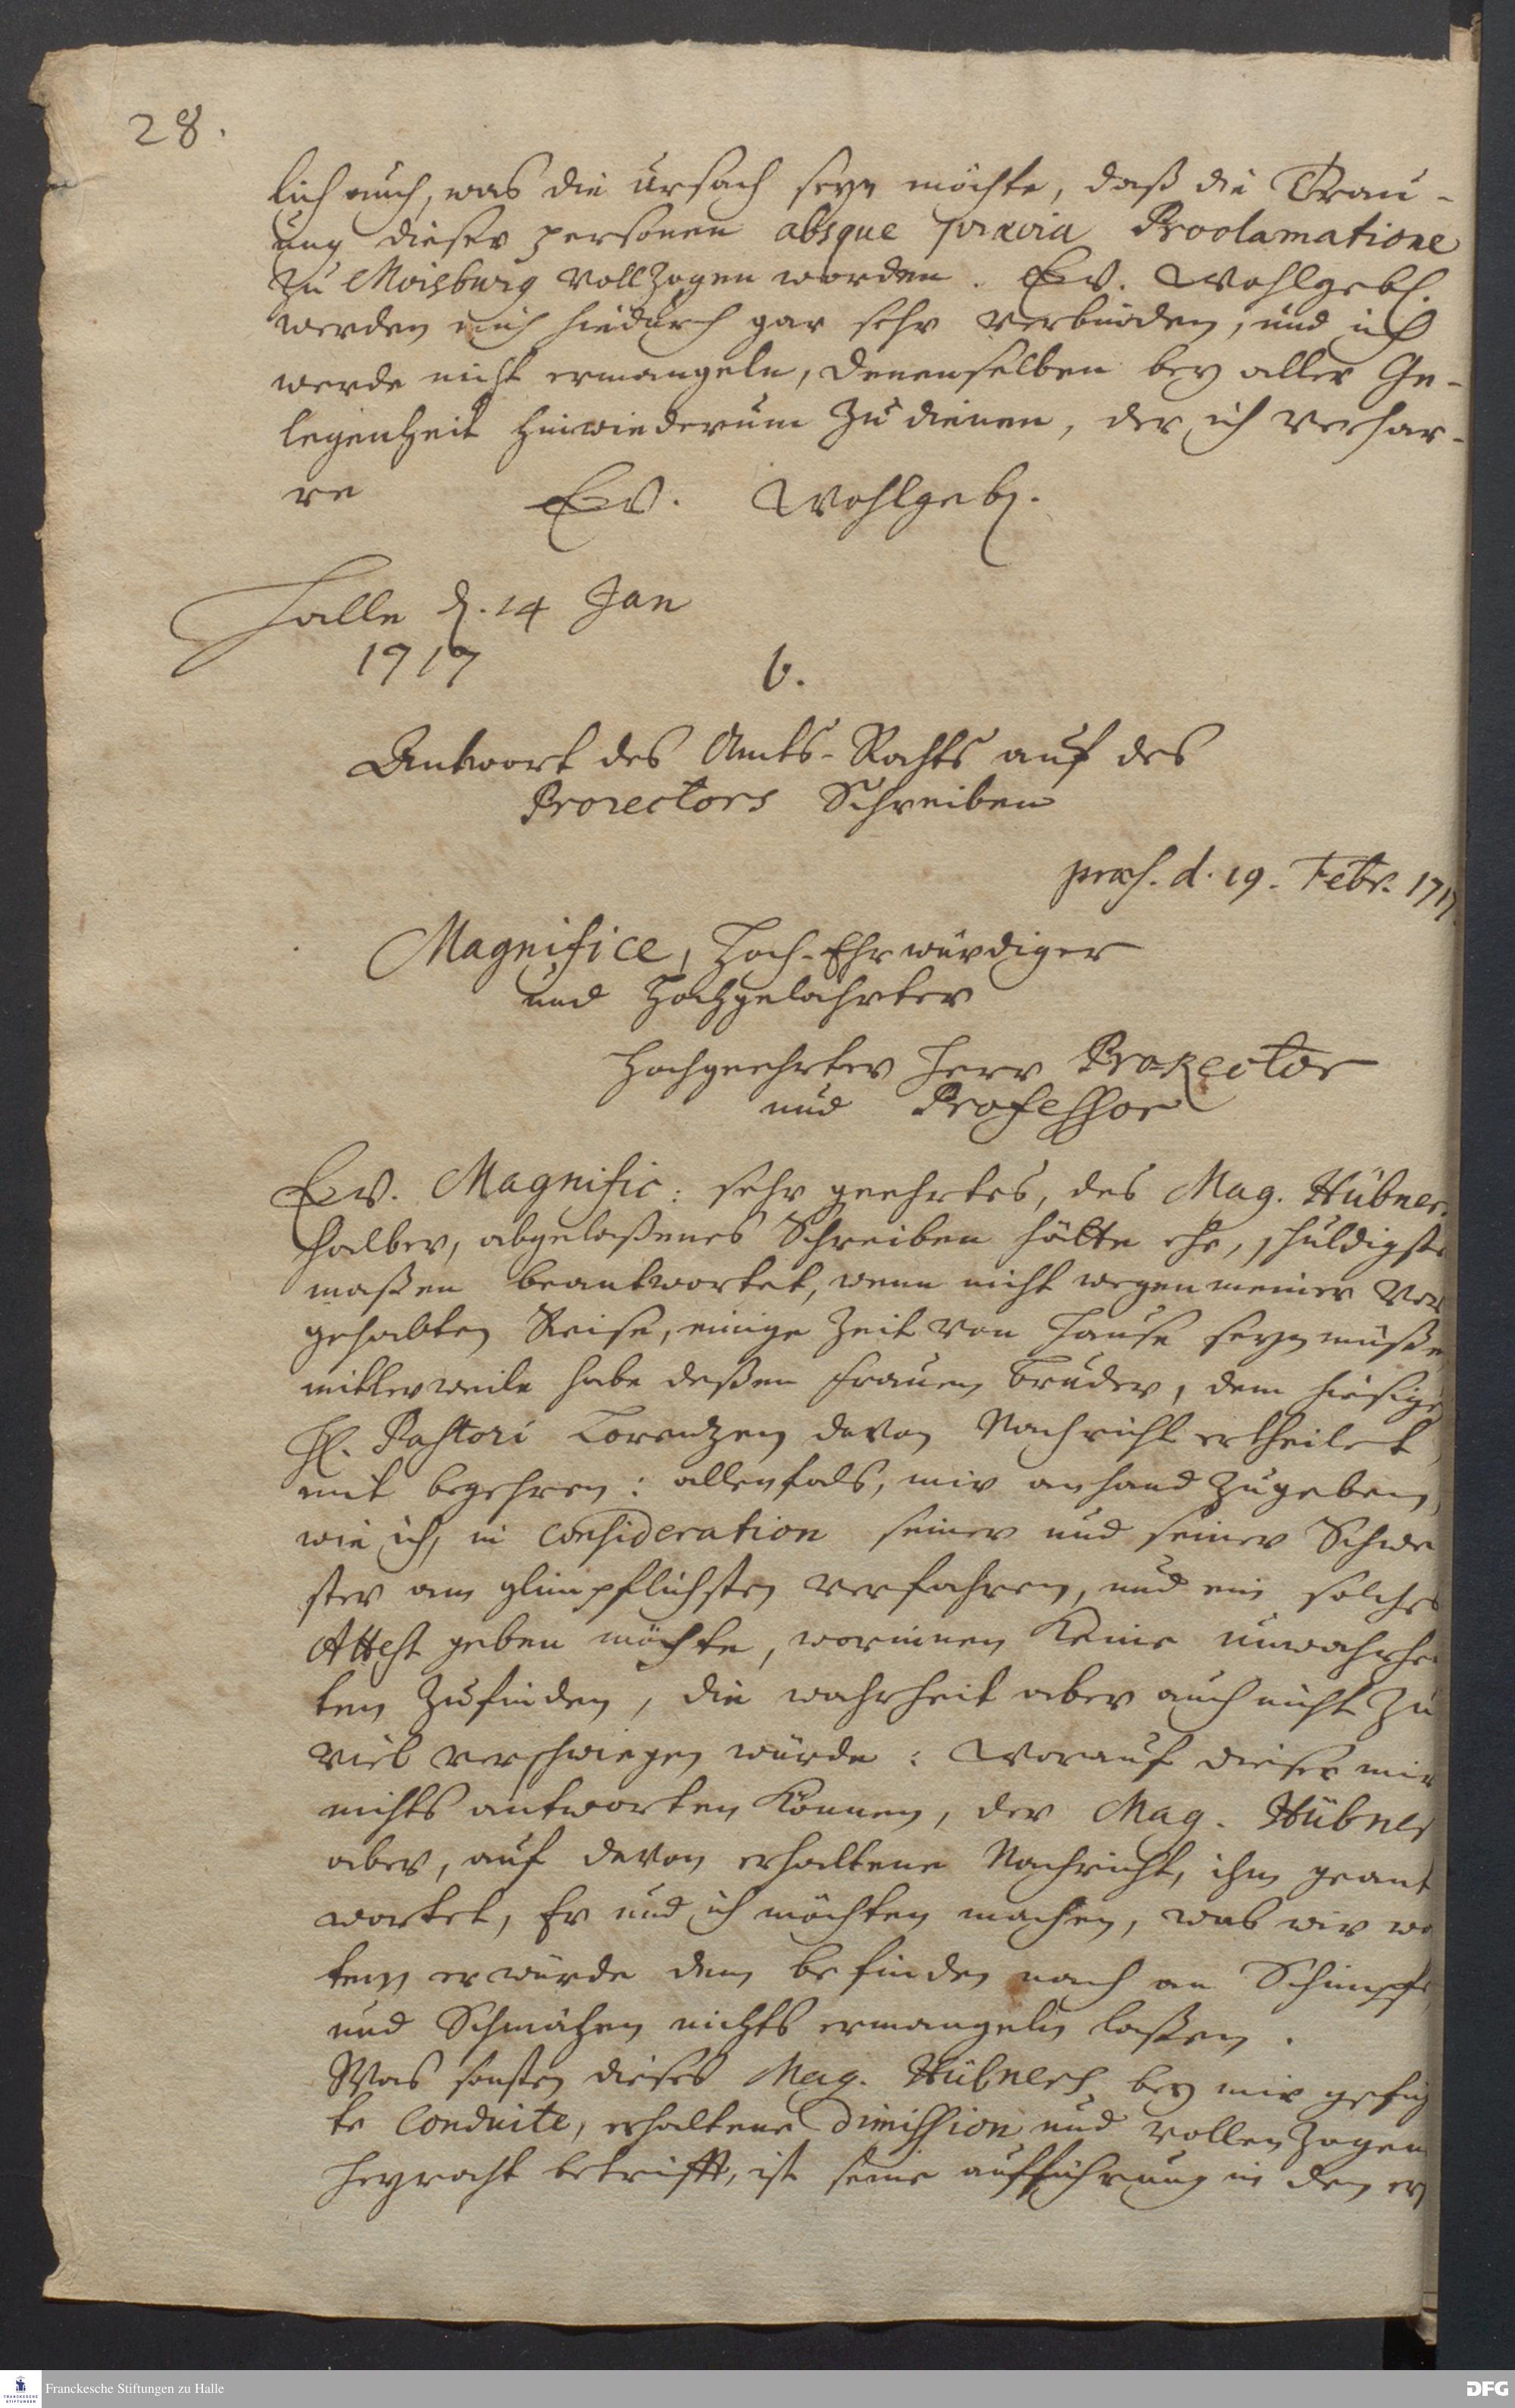 28.
lich auch, was die ursach seyn möchte, daß die Trau-
ung dieser personen absque praevia Proclamatione
zu Moisburg vollzogen worden. Ew. Wohlgeb.
werden mich hiedurch gar sehr verbinden, und ich
werde nicht ermangeln, denenselben bey aller Ge-
legenheit hinwiederum zu dienen, der ich verhar-
re Ew. Wohlgeb.
Halle d. 14 Jan
1717
b.
Antwort des Amts-Rahts auf des
Prorectors Schreiben
praes. d. 19. Febr. 1717.
Magnifice, Hoch-Ehrwürdiger
und Hochgelahrter
Hochgeehrter Herr ProRector
und Professor
Ew. Magnific: sehr geehrtes, des Mag. Hübners
halber, abgelaßenes Schreiben hätte ehe, schuldigster
maßen beantwortet, wenn nicht wegen meiner vor
gehabten Reise, einige Zeit von Hause seyn müßen
mittlerweile habe deßen Frauen Bruder, dem hiesigen
H. Pastori Lorentzen davon Nachricht ertheilet
mit begehren: allenfals, mir anhand zugeben,
wie ich, in consideration seiner und seiner Schwe
ster am glimpflichsten verfahren, und ein solches
Attest geben möchte, worinnen keine unwahrhei
ten zufinden, die wahrheit aber auch nicht zu
viel verschwiegen würde: Worauf dieser mir
nichts antworten können, der Mag. Hübner
aber, auf davon erhaltene Nachricht, ihm geant
wortet, Er und ich möchten machen, was wir wo
ten, er würde dem befinden nach an Schimpfen
und Schmähen nichts ermangeln laßen.
Was sonsten dieses Mag. Hübners bey mir gefüh
te Conduite, erhaltene dimission und vollenzogene
heyraht betrifft, ist seine aufführung in den er
Franckesche Stiftungen zu Halle
DFG